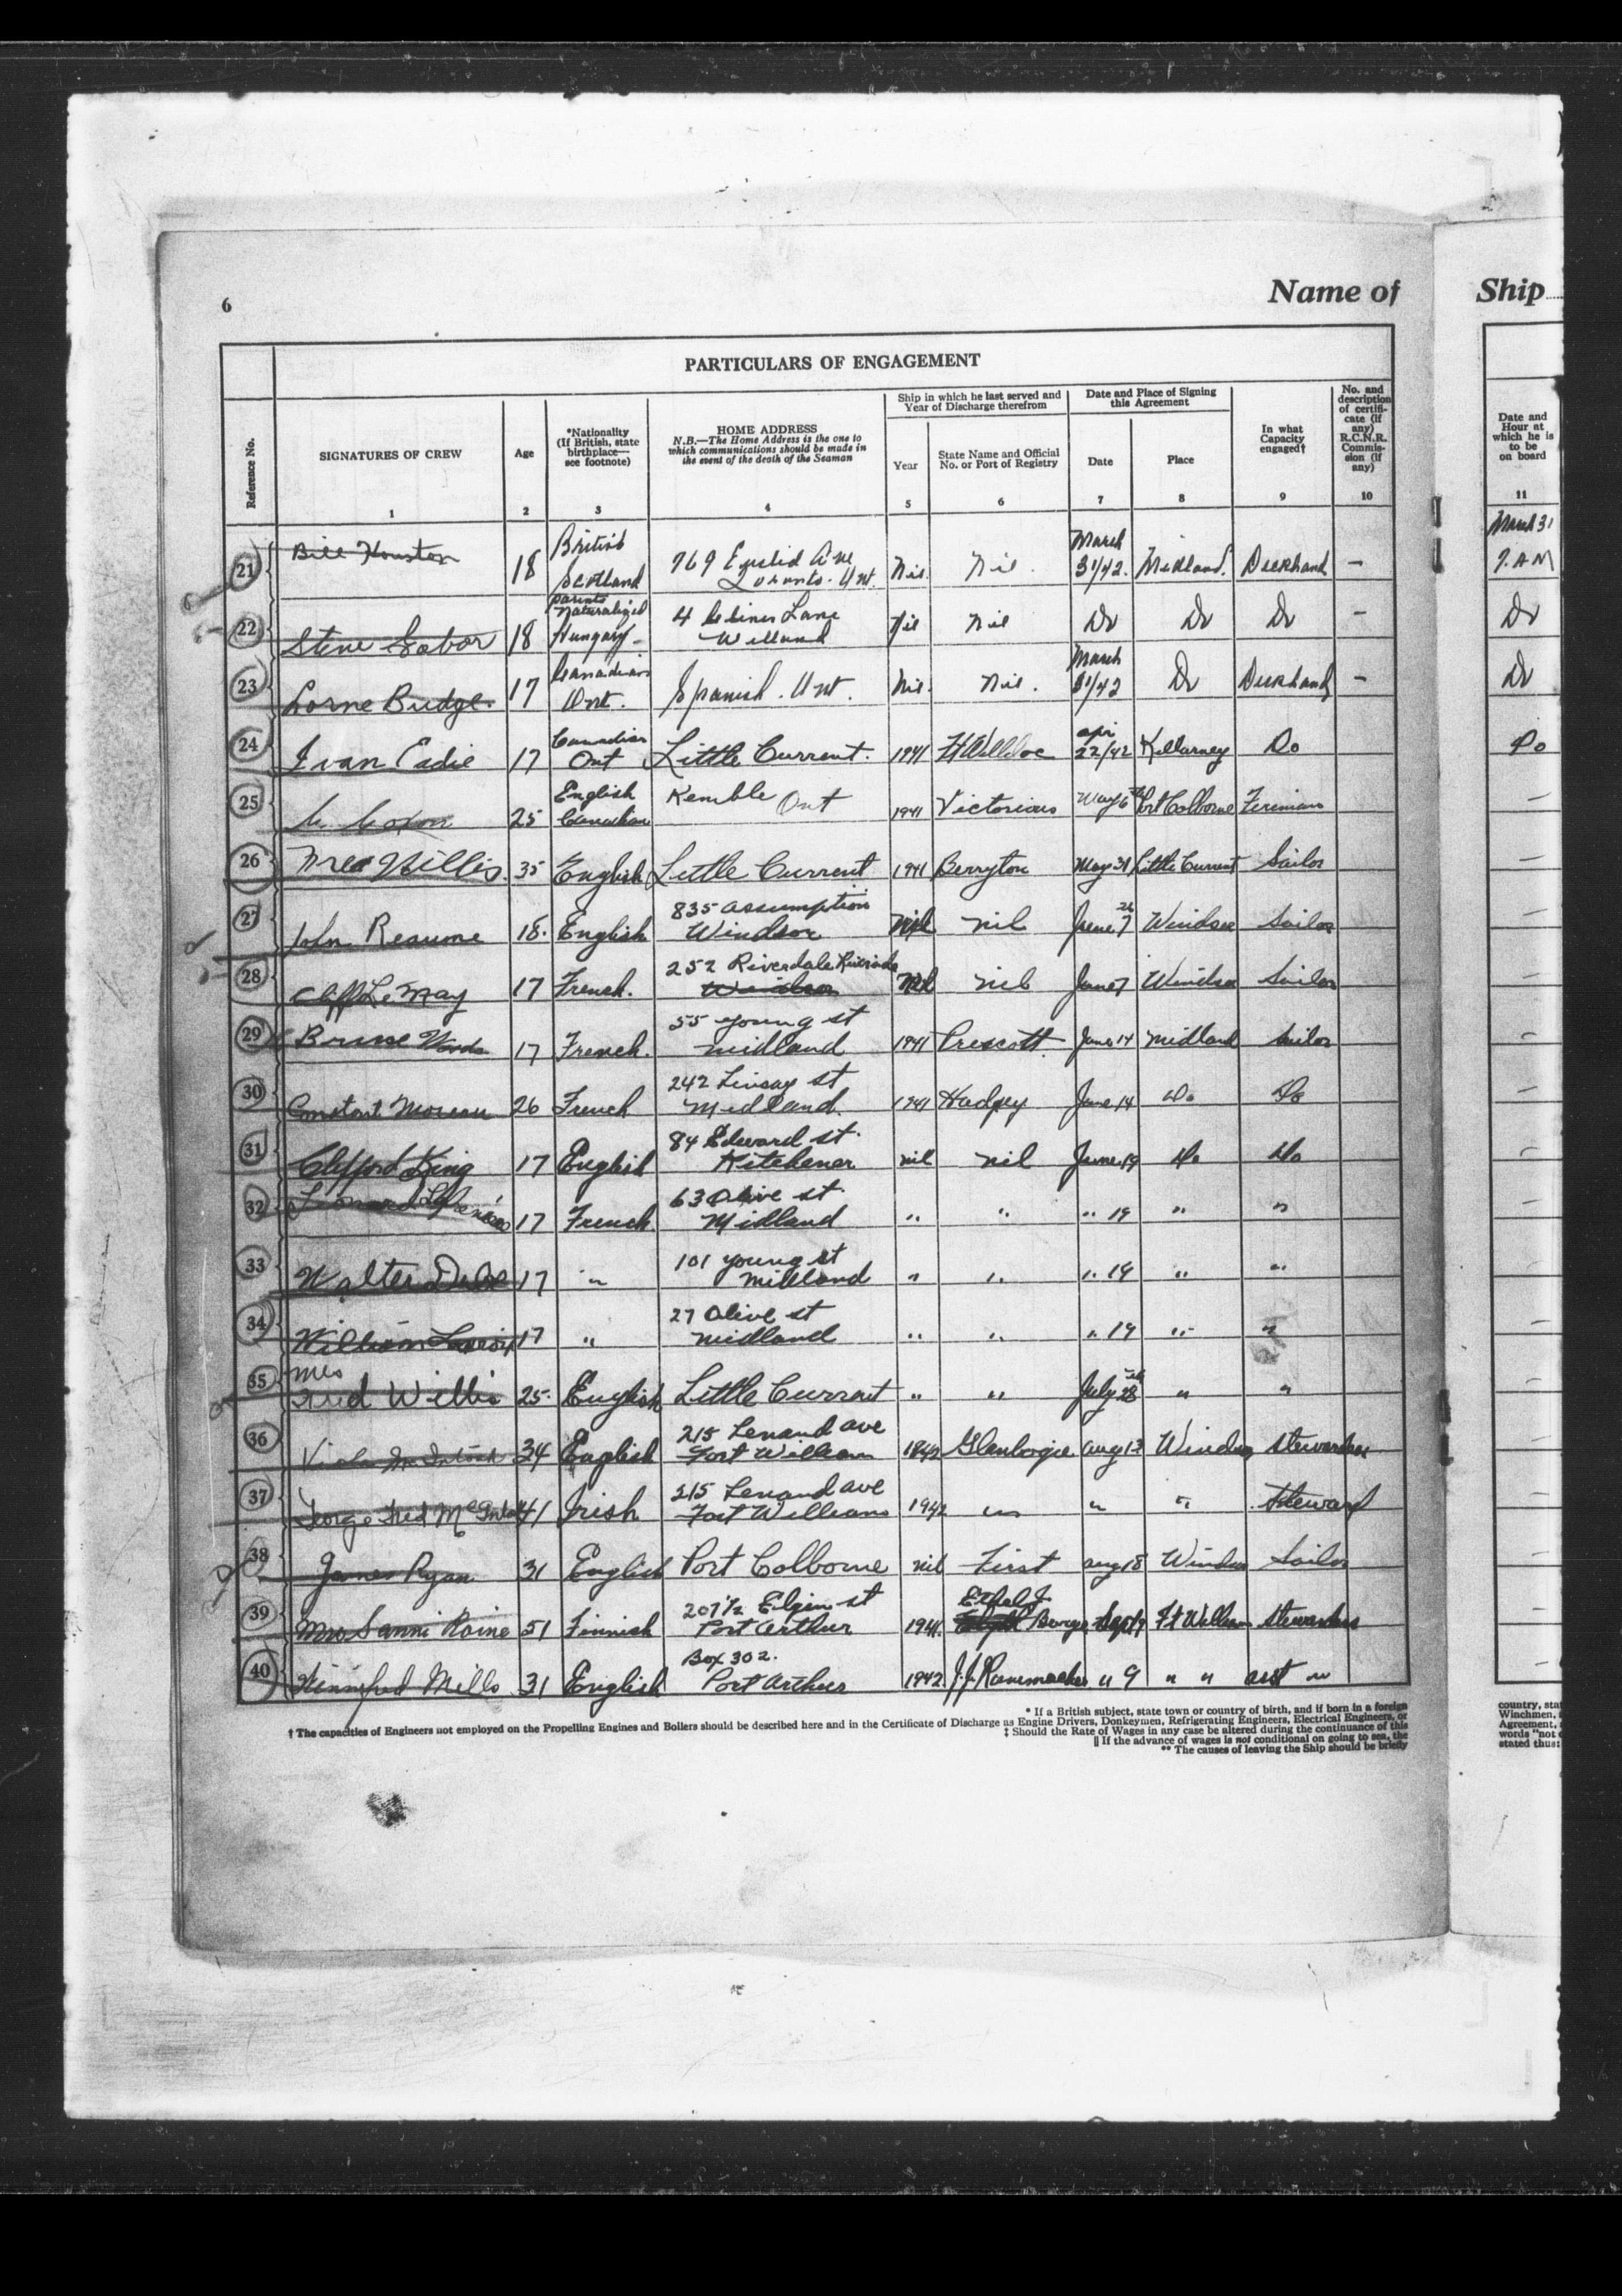 6
Name of
Ship
PARTICULARS OF ENGAGEMENT
Reference No.
SIGNATURES OF CREW
Age
*Nationality
(If British, state
birthplace—
see footnote)
HOME ADDRESS
N.B.—The Home Address is the one to
which communications should be made in
the event of the death of the Seaman
Ship in which he last served and
Year of Discharge therefrom
Year
State Name and Official
No. or Port of Registry
Date and Place of Signing
this Agreement
Date
Place
In what
Capacity
engaged†
No. and
description
of certifi-
cate (if
any)
R.C.N.R.
Commis-
sion (if
any)
Date and
Hour at
which he is
to be
on board
1 2 3 4 5 6 7 8 9 10 11
21 Bill Houston 18 British Scotland 769 Euclid Ave Toronto. Ont. Nil. Nil. March 31/42. Midland. Deckhand — March 31 7. AM
22 Steve Gabor 18 parents naturalized Hungary 4 Lane Welland Nil Nil Do Do Do — Do
23 Lorne Budge. 17 Canadian Ont. Spanish. Ont. Nil. Nil. March 31/42 Do Deckhand — Do
24 Ivan Eadie 17 Canadian Ont Little Current. 1941 Apr 22/42 Killarney Do Do
25 25 English Canadian Kemble Ont 1941 Victorious May 6 Port Colborne Fireman —
26 Fred Willis. 35 English Little Current 1941 Berryton May 31 Little Current Sailor —
27 John Reaume 18. English 835 Assumption Windsor Nil nil June 7 Windsor Sailor —
28 Cliff LeMay 17 French. 252 Riverdale Riverside Windsor Nil nil June 7 Windsor Sailor —
29 Bruce Woods 17 French. 55 young st midland 1941 Prescott. June 14 midland Sailor —
30 Constant Moreau 26 French 242 Linsay st Midland. 1941 Hadgey June 14 Do Do —
31 Clifford King 17 English 84 Edward st. Kitchener nil nil June 19 Do Do —
32 17 French 63 Olive st. Midland " " " 19 " " —
33 Walter 17 " 101 young st Midland " " " 19 " " —
34 William 17 " 27 Olive st midland " " " 19 " " —
35 Mrs Fred Willis 25. English Little Current " " July 28 " " —
36 Viola McIntosh 34 English 215 Lenand ave Fort William 1942 Glenbogie Aug 13 Windsor stewardess —
37 George Fred McIntosh 41 Irish 215 Lenand ave Fort William 1942 " " " Steward —
38 James Ryan 31 English Port Colborne nil First aug 18 Windsor Sailor —
39 Mrs Sanni Koine 51 Finnish 207½ Elgin st Port Arthur 1941. Ethel J. Barge Sept 9 Ft William stewardess —
40 Winnifred Mills 31 English Box 302. Port Arthur 1942 " 9 " " asst " —
* If a British subject, state town or country of birth, and if born in a foreign
† The capacities of Engineers not employed on the Propelling Engines and Boilers should be described here and in the Certificate of Discharge as Engine Drivers, Donkeymen, Refrigerating Engineers, Electrical Engineers, or
‡ Should the Rate of Wages in any case be altered during the continuance of this
|| If the advance of wages is not conditional on going to sea, the
** The causes of leaving the Ship should be briefly
country, stat
Winchmen,
Agreement,
words "not
stated thus: